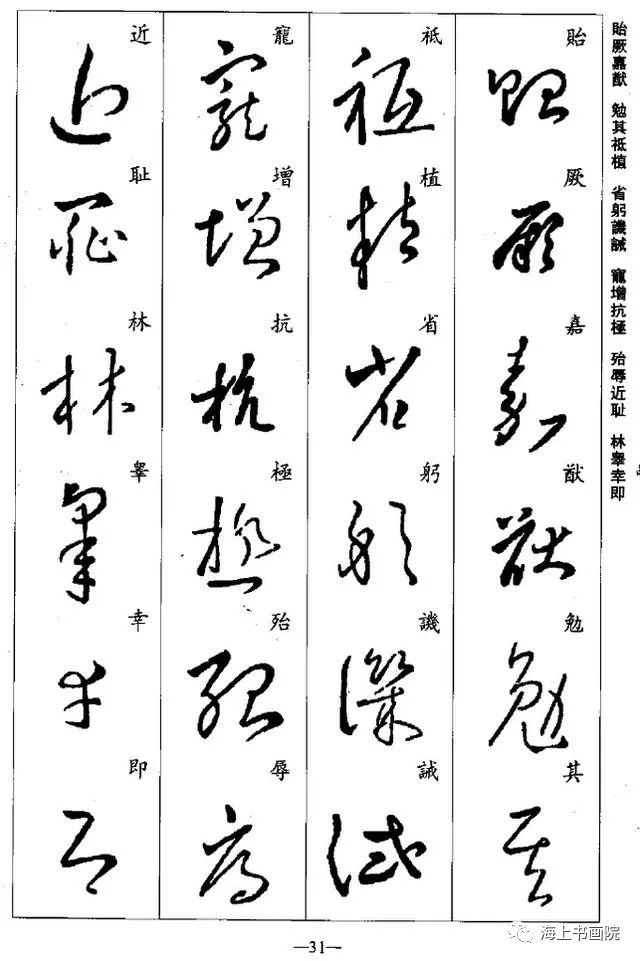 貽厥嘉猷 勉其祗植 省躬譏誡 寵增抗極 殆辱近耻 林皋幸即
貽厥嘉猷勉其
祗植省躬譏誡
寵增抗極殆辱
近耻林皋幸即
—31—
海上书画院